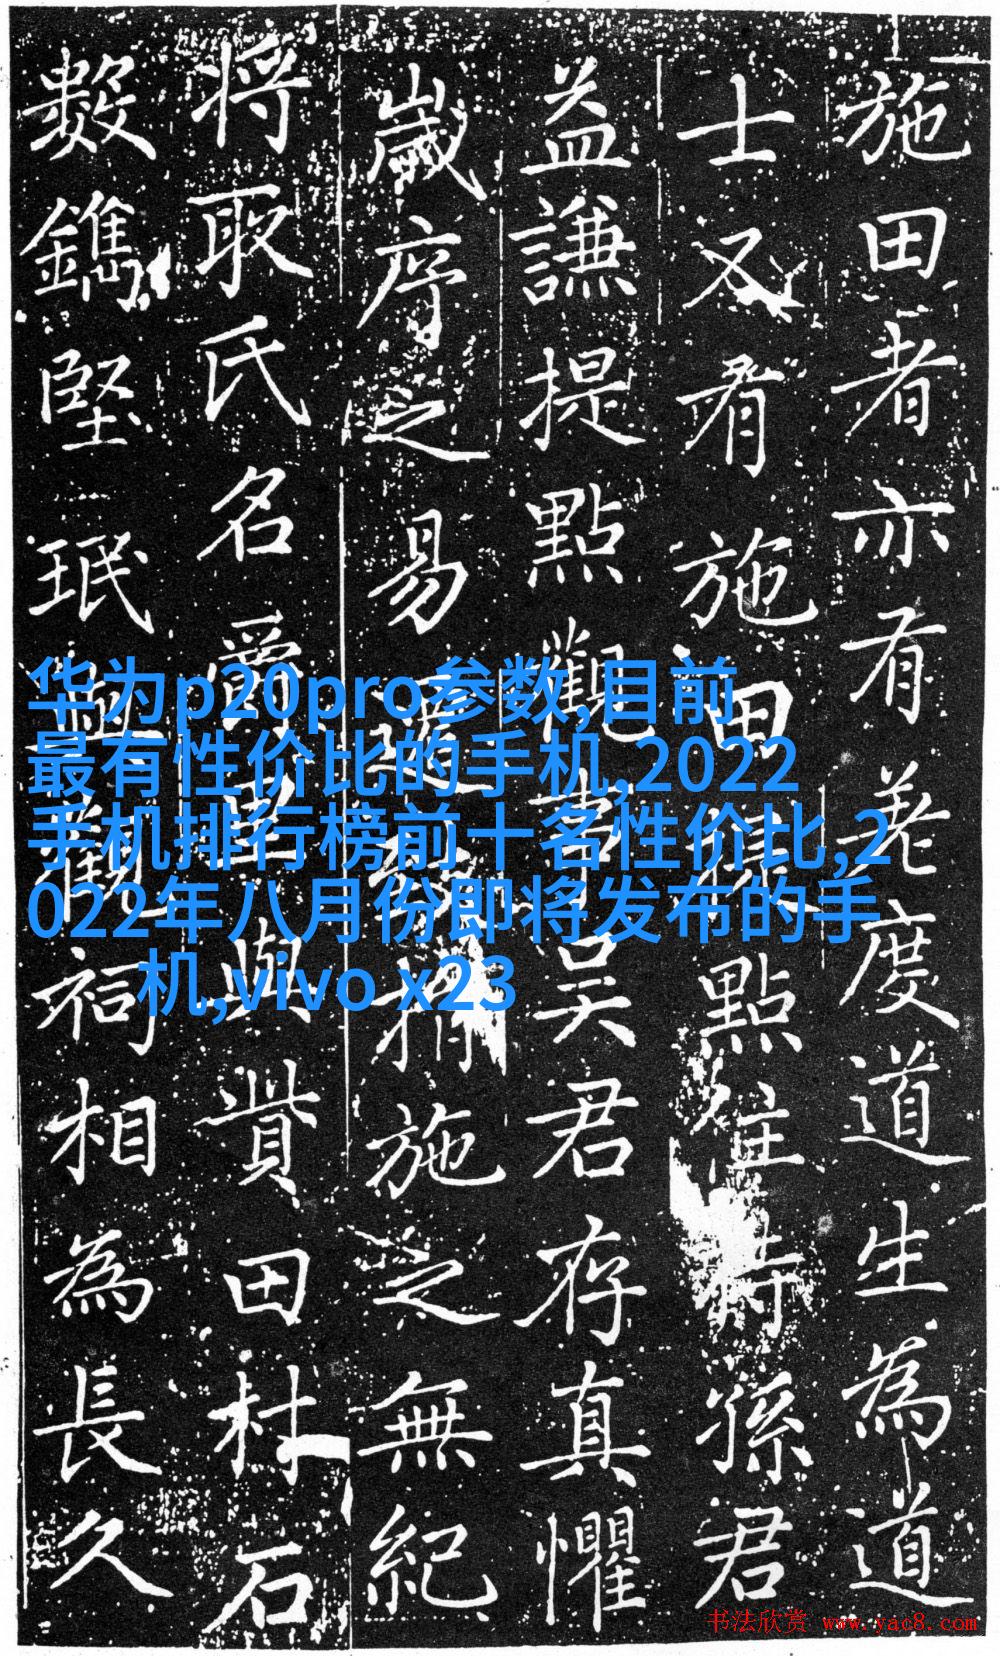 施田者亦有羔度道生为道
士又有施田 點住持孫君
益謙提點觀事吳君存真懼
歲序之易 施之無紀
将取氏名 與貲田杜石
數鐫堅珉 觀祠相為長久
华为p20pro参数,目前
最有性价比的手机,2022
手机排行榜前十名性价比,2
022年八月份即将发布的手
机,vivo x23
书法欣赏 www.yac8.com